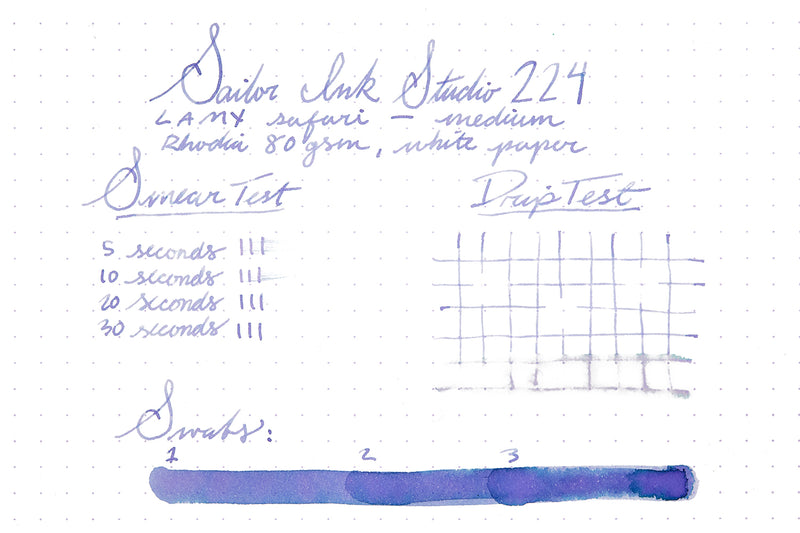 Sailor Ink Studio 224
LAMY safari — medium
Rhodia 80 gsm, white paper
Smear Test
Drip Test
5 seconds III
10 seconds III
20 seconds III
30 seconds III
Swabs:
1 2 3